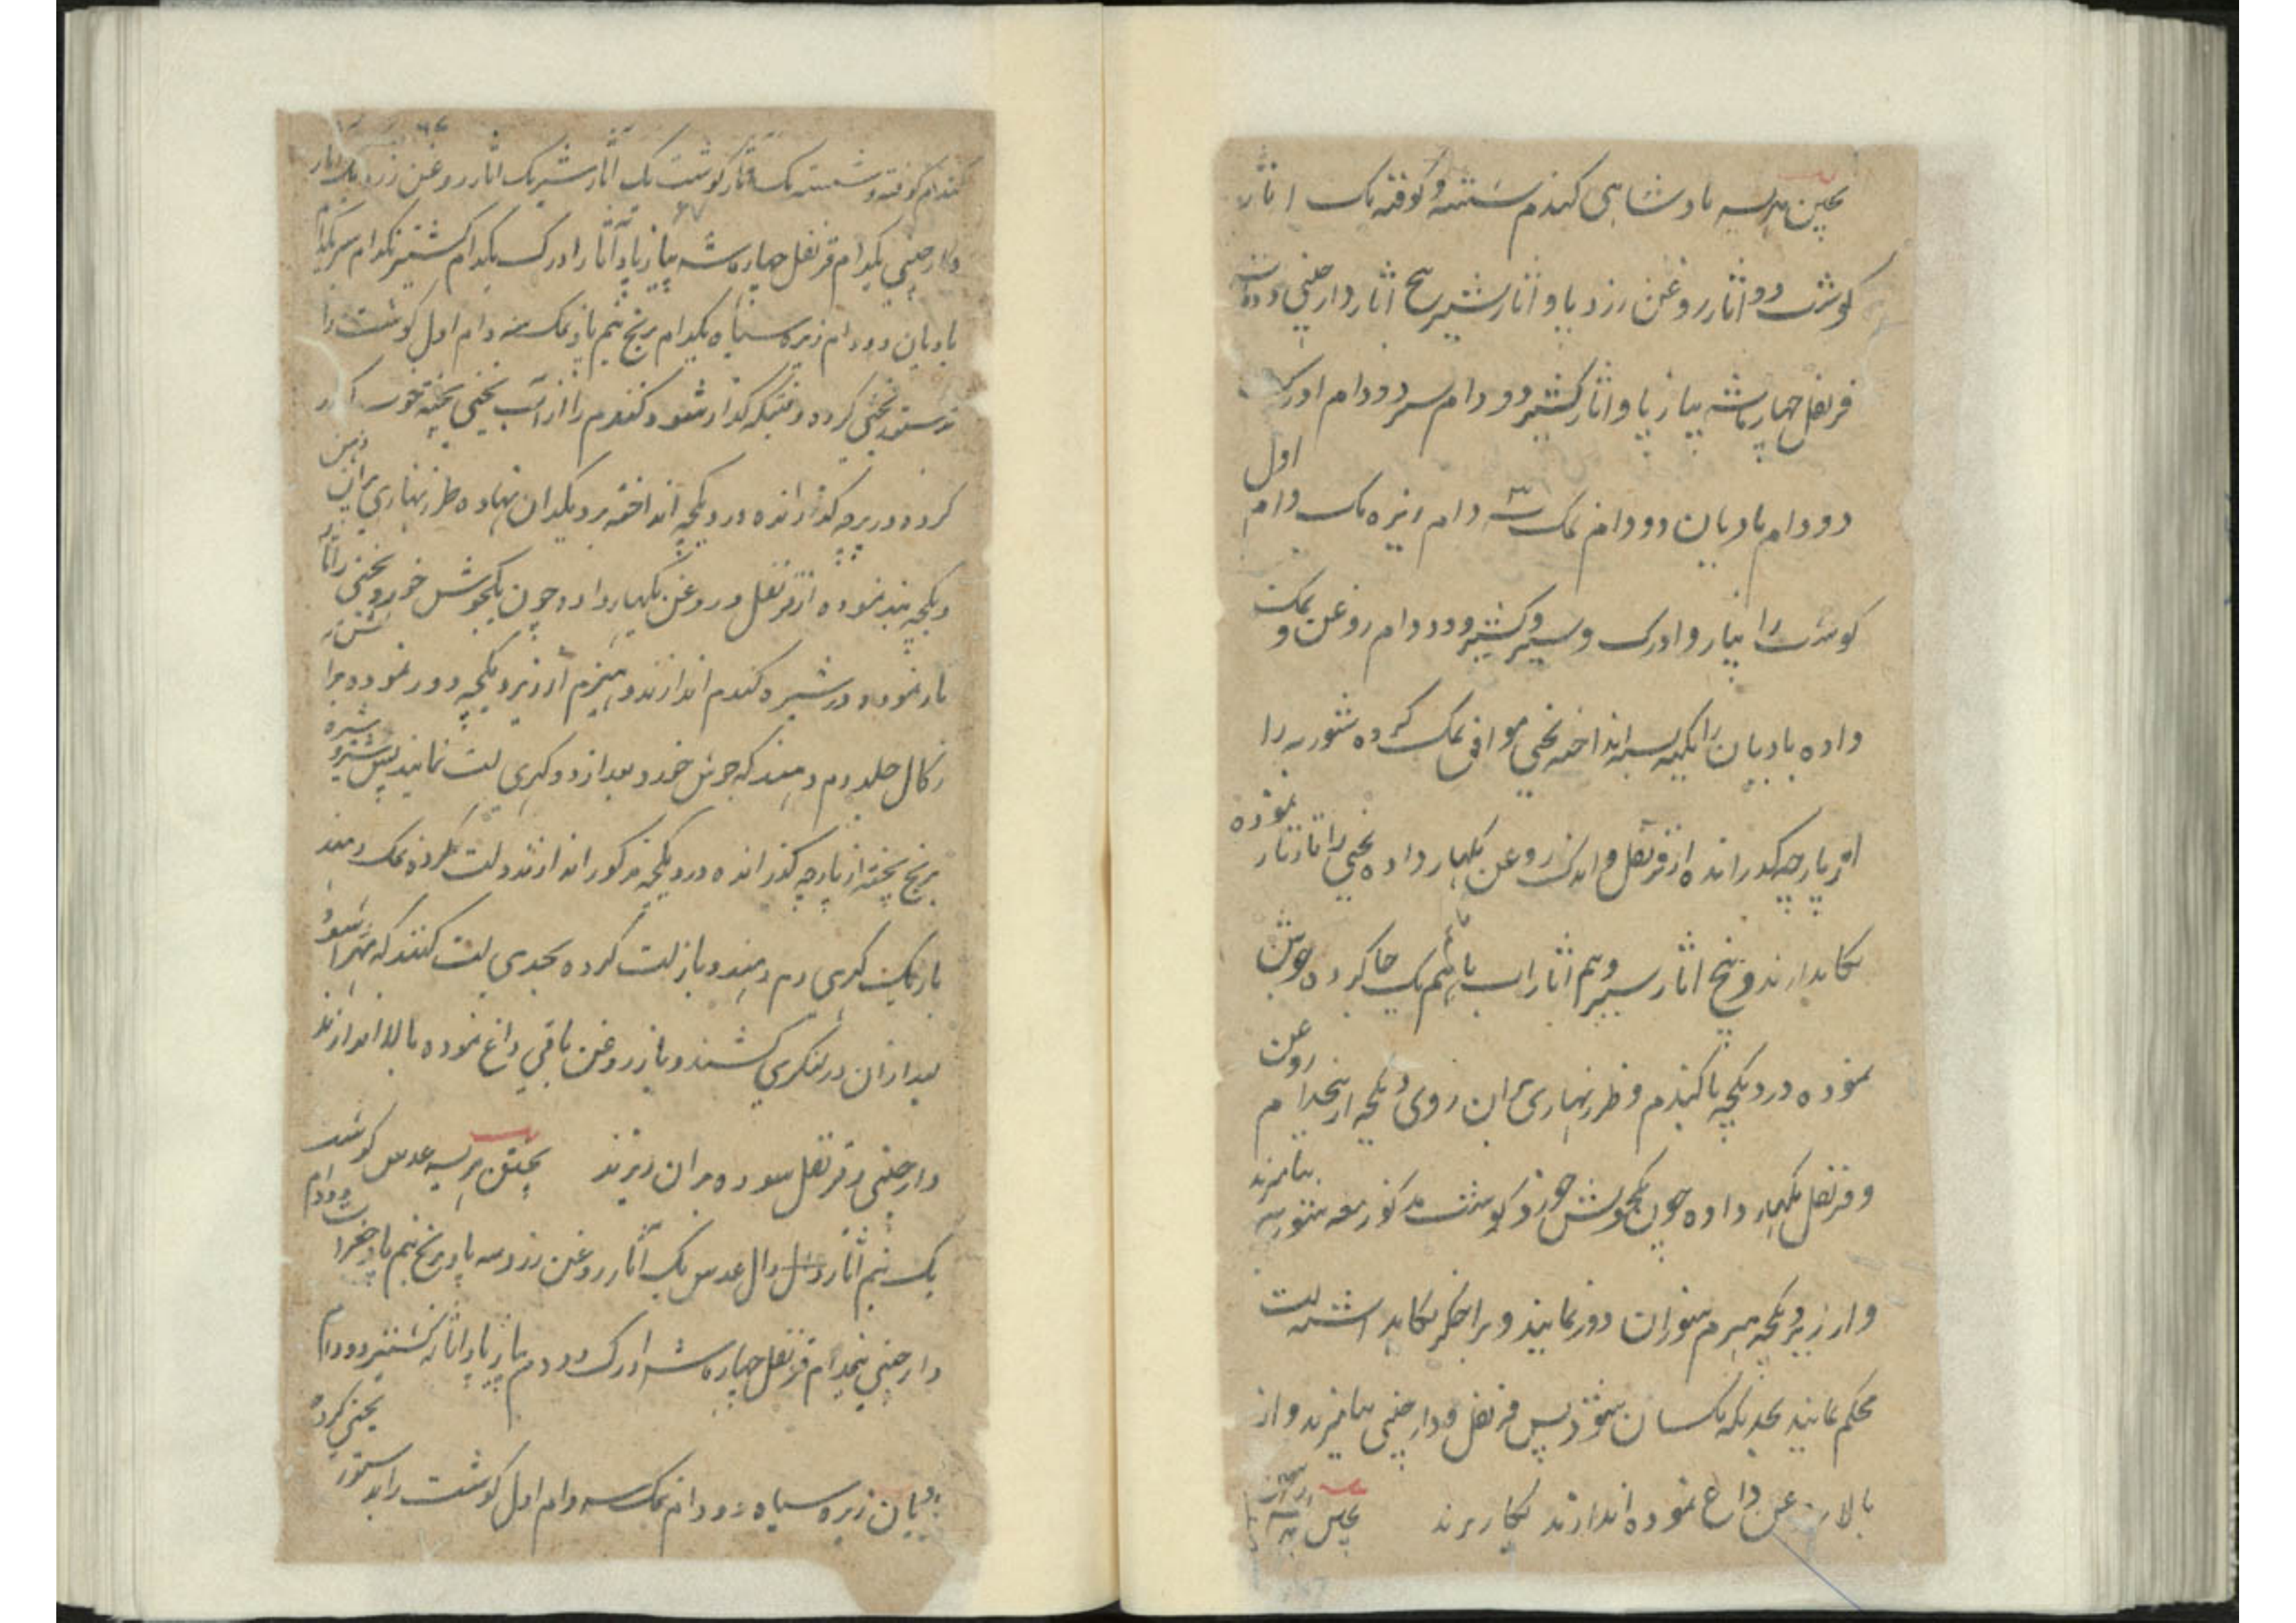 پختن هریسه بادشاهی کندم شسته و کوفته یک اثار
کوشت دو اثار روغن زرد پاو اثار شیر پنج اثار دارچینی دو
قرنفل چهارماشه پیاز پاو اثار کشنیز دو دام سیر دو دام ادرک
دو دام بادیان دو دام نمک سه دام زیره یک دام اول
کوشت را پیاز و ادرک و سیر و کشنیز و دو دام روغن و نمک
داده بادیان را بسته انداخته یخنی موافق نمک کرده شوربه را
از پارچه کذرانده از قرنفل و اندک روغن بکهار داده یخنی را تار تار نموده
نکاهدارند و پنج اثار شیر و نیم اثار اب باهم یک جا کرده جوش
نموده در دیکچه با کندم و طرز نهاری بران روی دیکچه از پنجدام روغن
و قرنفل بکهار داده چون یکجوش خورد کوشت مذکور معه شوربه بیامیزند
و از زیر دیکچه هیزم سوزان دور نمایند و بر اخکر نکاهداشته لت
محکم نمایند بحدیکه یکسان شود پس قرنفل و دارچینی بیامیزند و از
بالا روغن داغ نموده اندازند بکار برند پختن
کندم کوفته و شسته یک اثار کوشت یک اثار شیر یک اثار روغن زرد
دارچینی یکدام قرنفل چهارماشه پیاز پاو اثار ادرک یکدام کشنیز یکدام سیر یکدام
بادیان دو دام زیره سیاه یکدام برنج نیم پاو نمک سه دام اول کوشت را
بدستور یخنی کرده وقتیکه کداز شود کندم را از آب یخنی پخته خوب
کرده در پرچه کذرانده در دیکچه انداخته بر دیکدان نهاده طرز نهاری بران دهن
دیکچه بند نموده از قرنفل و روغن بکهار داده چون یکجوش خورد یخنی را تار
تار نموده در شیره کندم اندازند و هیزم از زیر دیکچه دور نموده برا
زکال جلد دم دهند که جوش خورد بعد از دو کهری لت نمایند پس شیر و شیره
برنج پخته از پارچه کذرانده در دیکچه مذکور اندازند و لت کرده نمک دهند
باز یک کهری دم دهند و باز لت کرده بحدی لت کنند که مهرا شود
بعد ازان در لنکری کشند و باز روغن باقی داغ نموده بالا اندازند
دارچینی و قرنفل سوده بران ریزند پختن هریسه عدس کوشت
یک نیم اثار دال عدس یک اثار روغن زرد سه پاو برنج نیم پاو
دارچینی نیمدام قرنفل چهارماشه ادرک دو دام پیاز پاو اثار کشنیز دو دام
بادیان زیره سیاه دو دام نمک سه دام اول کوشت را بدستور یخنی کرده